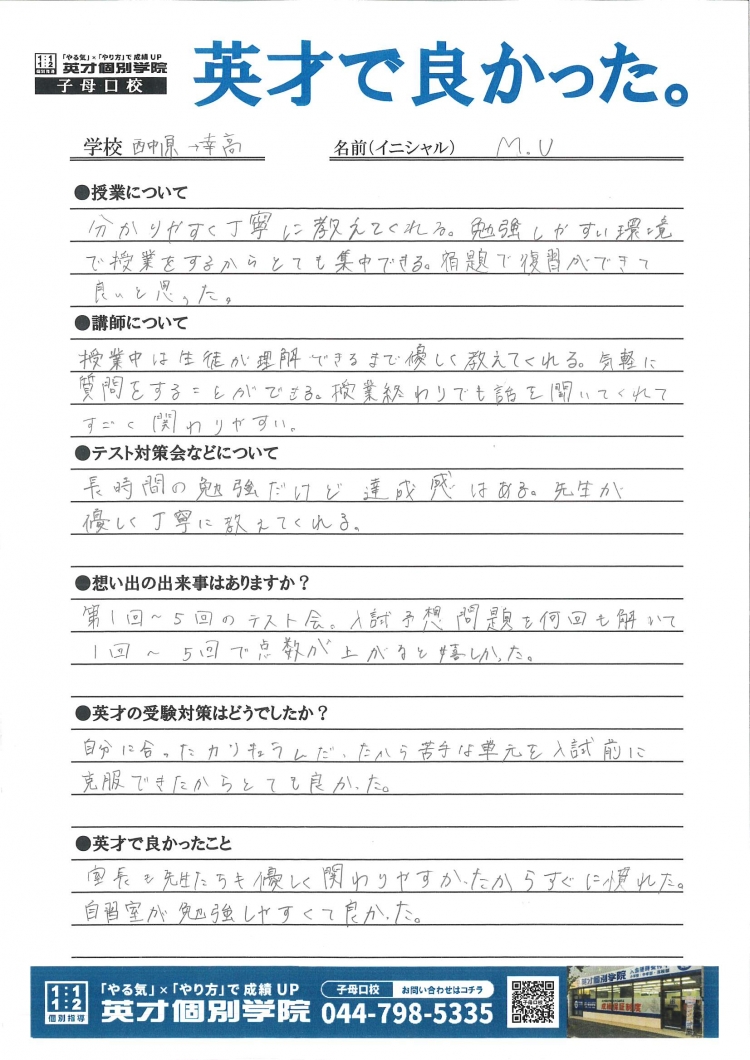 「やる気」×「やり方」で成績UP
1:1 1:2 個別指導 英才個別学院
子母口校
英才で良かった。
学校 西中原→幸高 名前(イニシャル) M.U
●授業について
分かりやすく丁寧に教えてくれる。勉強しやすい環境
で授業をするからとても集中できる。宿題で復習ができて
良いと思った。
●講師について
授業中は生徒が理解できるまで優しく教えてくれる。気軽に
質問をすることができる。授業終わりでも話を聞いてくれて
すごく関わりやすい。
●テスト対策会などについて
長時間の勉強だけど達成感はある。先生が
優しく丁寧に教えてくれる。
●想い出の出来事はありますか?
第1回~5回のテスト会。入試予想問題を何回も解いて
1回~5回で点数が上がると嬉しかった。
●英才の受験対策はどうでしたか?
自分に合ったカリキュラムだったから苦手な単元を入試前に
克服できたからとても良かった。
●英才で良かったこと
室長も先生たちも優しく関わりやすかったからすぐに慣れた。
自習室が勉強しやすくて良かった。
1:1 1:2 個別指導
「やる気」×「やり方」で成績UP
英才個別学院
子母口校 お問い合わせはコチラ
044-798-5335
子母口校
英才個別学院